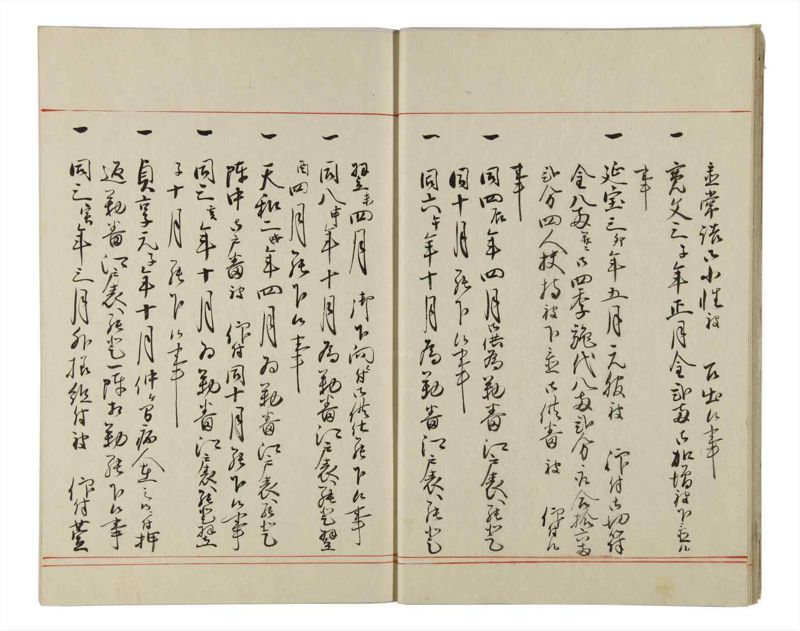 常詰御小性被 召出候事
一 寛文十二子年正月金弐両御加増被下置候
事
一 延宝三卯年五月元服被 仰付御切符
金八両並御四季施代八両弐分都合拾六両
弐分四人扶持被下置御供番被 仰付候
事
一 同四辰年四月御供為勤番江戸表江罷登
同十月罷下候事
一 同六午年十月為勤番江戸表江罷登
翌未四月 御下向ニ付御供仕罷下候事
一 同八申年十月為勤番江戸表江罷登翌
酉四月罷下候事
一 天和二戌年四月為勤番江戸表江罷登
陣中御戸番被 仰付同十月罷下候事
一 同三亥年十月為勤番江戸表江罷登翌
子十月罷下候事
一 貞享元子年十月仲ヶ間病人在之ニ付押
返勤番江戸表江罷登一陣相勤罷下候事
一 同三寅年三月外様組付被 仰付